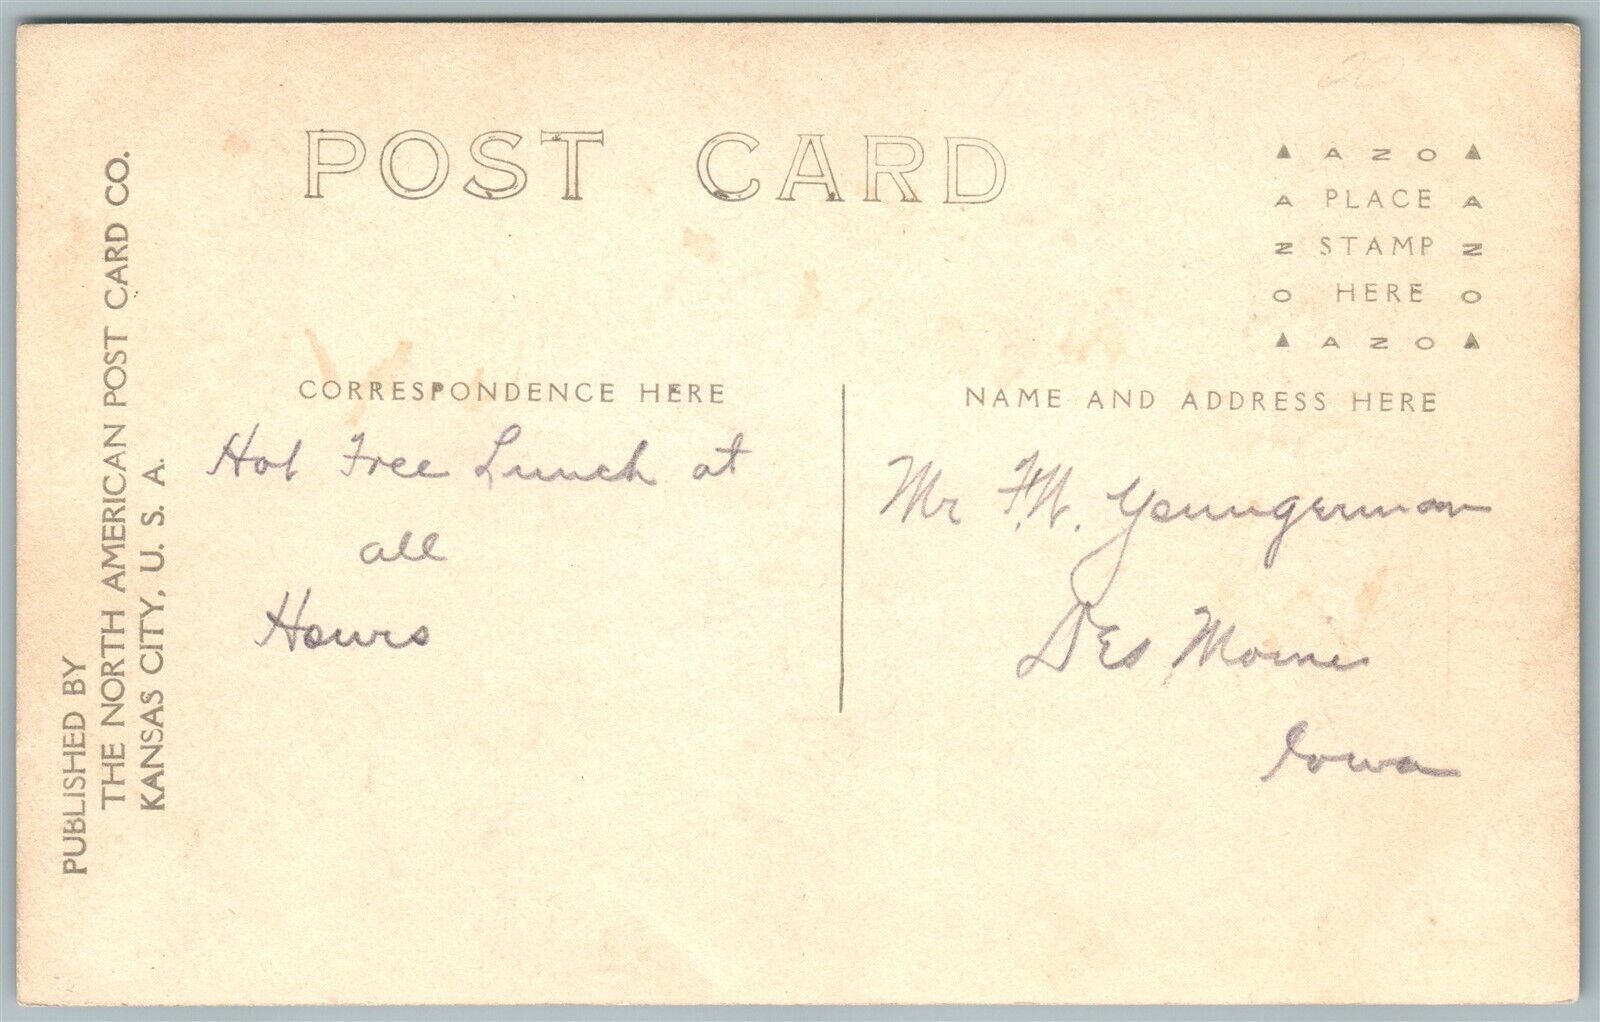 POST CARD
PUBLISHED BY
THE NORTH AMERICAN POST CARD CO.
KANSAS CITY, U. S. A.
20
▲ A Z O ▲
A PLACE A
Z STAMP Z
O HERE O
▲ A Z O ▲
CORRESPONDENCE HERE
Hot Free Lunch at
all
Hours
NAME AND ADDRESS HERE
Mr F.W. Youngerman
DEs Moines
Iowa